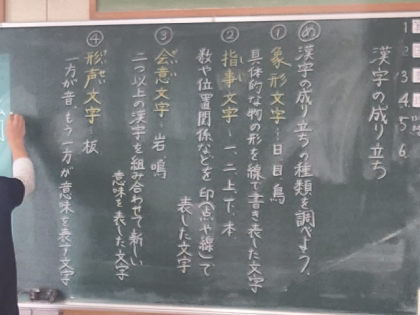 漢字の成り立ち
め 漢字の成り立ちの種類を調べよう。
① 象形文字―日 目 鳥
具体的な物の形を線で書き表した文字
② 指事文字―一 二 上 下 本
数や位置関係などを印(点や線)で
表した文字
③ 会意文字―岩 鳴
二つ以上の漢字を組み合わせて新しい
意味を表した文字
④ 形声文字―板
一方が音、もう一方が意味を表す文字
1
2
3
4.
5.
6.